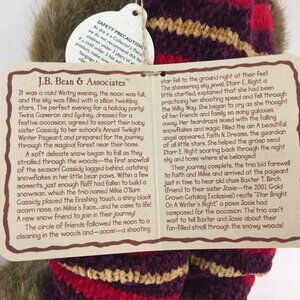 SAFETY PRECAUTION
J.B. Bean & Associates™
It was a cold Wintry evening, the moon was full,
and the sky was filled with a zillion twinkling
stars. The perfect evening for a holiday party!
Twins Cameron and Sydney, dressed for a
festive occasion, agreed to escort their baby
sister Cassidy to her school's Annual Twilight
Winter Pageant, and prepared for the journey
through the magical forest near their home.
A soft delicate snow began to fall as they
strolled through the woods—the first snowfall
of the season! Cassidy lagged behind, catching
snowflakes in her little bear paws. Within a few
moments, just enough fluff had fallen to build a
snowman, which the trio named Mikie Flurry.
Cassidy placed the finishing touch, a shiny black
acorn nose, on Mikie's face...and he came to life!
A new snow friend to join in their journey!
The circle of friends followed the moon to a
clearing in the woods and—poom!—a shooting
star fell to the ground right at their feet.
The shimmering jewel, Starr E. Night, a
little startled, explained that she had been
practicing her shooting speed and fell through
the Milky Way. She began to cry as she thought
of her friends and family so many galaxies
away. Her teardrops mixed with the falling
snowflakes and magic filled the air! A beautiful
angel appeared, Faith N. Dreams, the guardian
of all little stars. She helped the group send
Starr E. Night soaring back through the night
sky and home where she belonged!
Their journey complete, the trio bid farewell
to Faith and Mikie and arrived at the pageant
just in time to hear old chum Baxter T. Birch
(friend to their sister Josie—the 2001 Grand
Crown Catalog Exclusive!) recite "Star Bright
On A Winter's Night" a poem Josie had
composed for the occasion. The trio can't
wait to tell Baxter and Josie about their
far-flung stroll through the snowy woods!